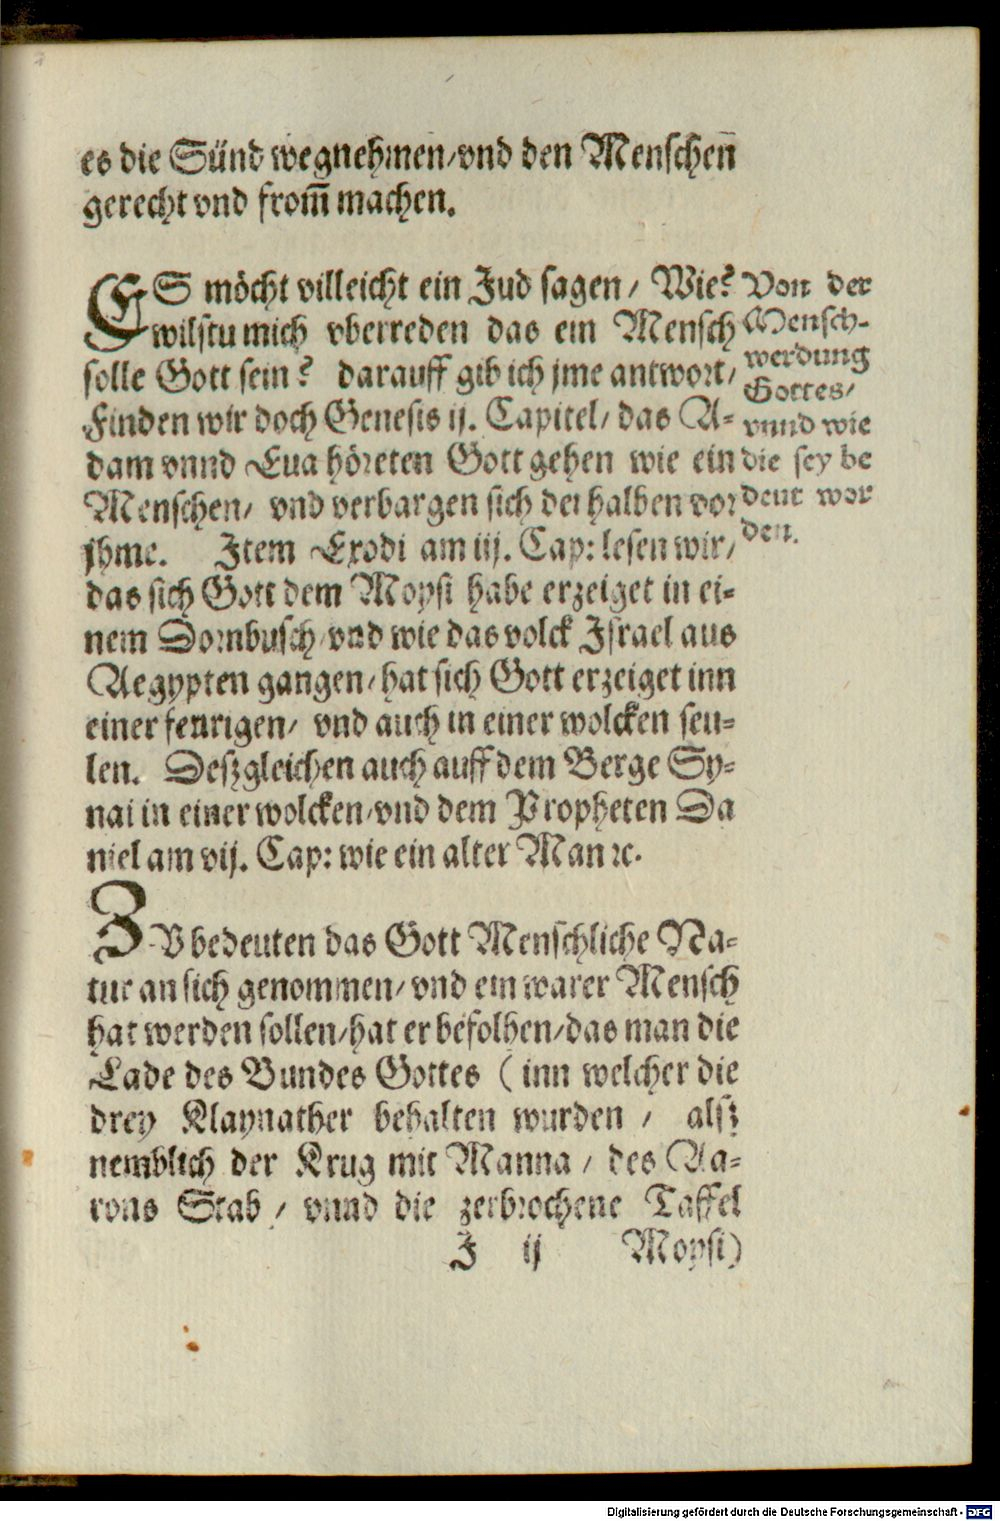 es die Sünd wegnehmen/vnd den Menschen̄
gerecht vnd from̄ machen.
ES möcht villeicht ein Jud sagen/ Wie?
wilstu mich vberreden das ein Mensch
solle Gott sein? darauff gib ich jme antwort/
Finden wir doch Genesis ij. Capitel/ das A-
dam vnnd Eua höreten Gott gehen wie ein
Menschen/ vnd verbargen sich derhalben vor
jhme. Item Exodi am iij. Cap: lesen wir/
das sich Gott dem Moysi habe erzeiget in ei-
nem Dornbusch/vnd wie das volck Israel aus
Aegypten gangen/hat sich Gott erzeiget inn
einer feurigen/ vnd auch in einer wolcken seu-
len. Deßgleichen auch auff dem Berge Sy-
nai in einer wolcken/vnd dem Propheten Da
niel am vij. Cap: wie ein alter Man ꝛc.
Von der
Mensch-
werdung
Gottes/
vnnd wie
die sey be
deut wor
den.
ZV bedeuten das Gott Menschliche Na-
tur an sich genommen/vnd ein warer Mensch
hat werden sollen/hat er befolhen/das man die
Lade des Bundes Gottes (inn welcher die
drey Klaynather behalten wurden / alß
nemblich der Krug mit Manna / des Aa-
rons Stab / vnnd die zerbrochene Taffel
J ij Moysi)
Digitalisierung gefördert durch die Deutsche Forschungsgemeinschaft - DFG